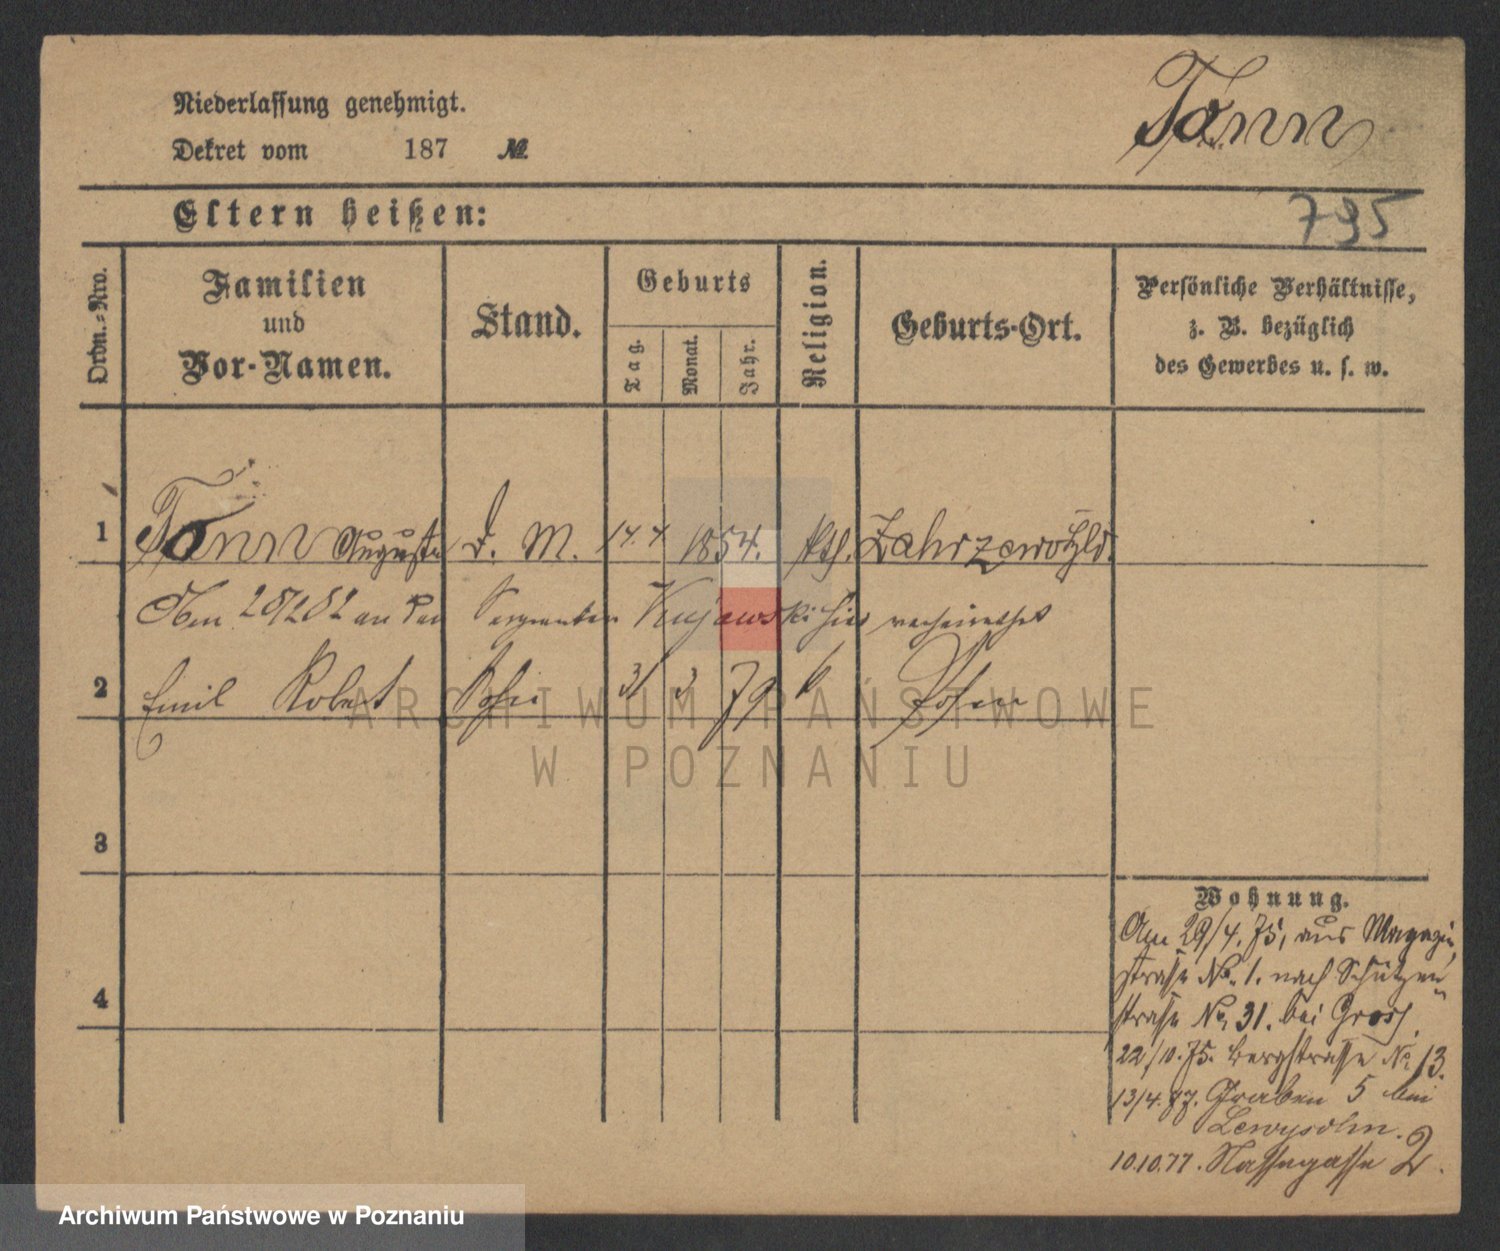 Niederlassung genehmigt.
Tonn
Dekret vom 187 №
Eltern heißen:
795
Ordn.-Nro.
Familien und Vor-Namen.
Stand.
Geburts
Tag.
Monat.
Jahr.
Religion.
Geburts-Ort.
Persönliche Verhältnisse,
z. B. bezüglich
des Gewerbes u. s. w.
1 Tonn Auguste D. M. 14. 4 1854. kth.
Am 28/2 82 an den Sergeanten Kujawski hier verheirathet
2 Emil Robert Sohn 31 3 79 k Posen
ARCHIWUM PAŃSTWOWE
W POZNANIU
3
4
Wohnung.
Am 29/4. 75, aus Magazin
strasse No. 1. nach Schützen
strasse No. 31. bei Gross.
22/10. 75. Bergstrasse No 13.
13/4. 77. Graben 5 bei
Lewysohn.
10.10.77. Nassegasse 2.
Archiwum Państwowe w Poznaniu